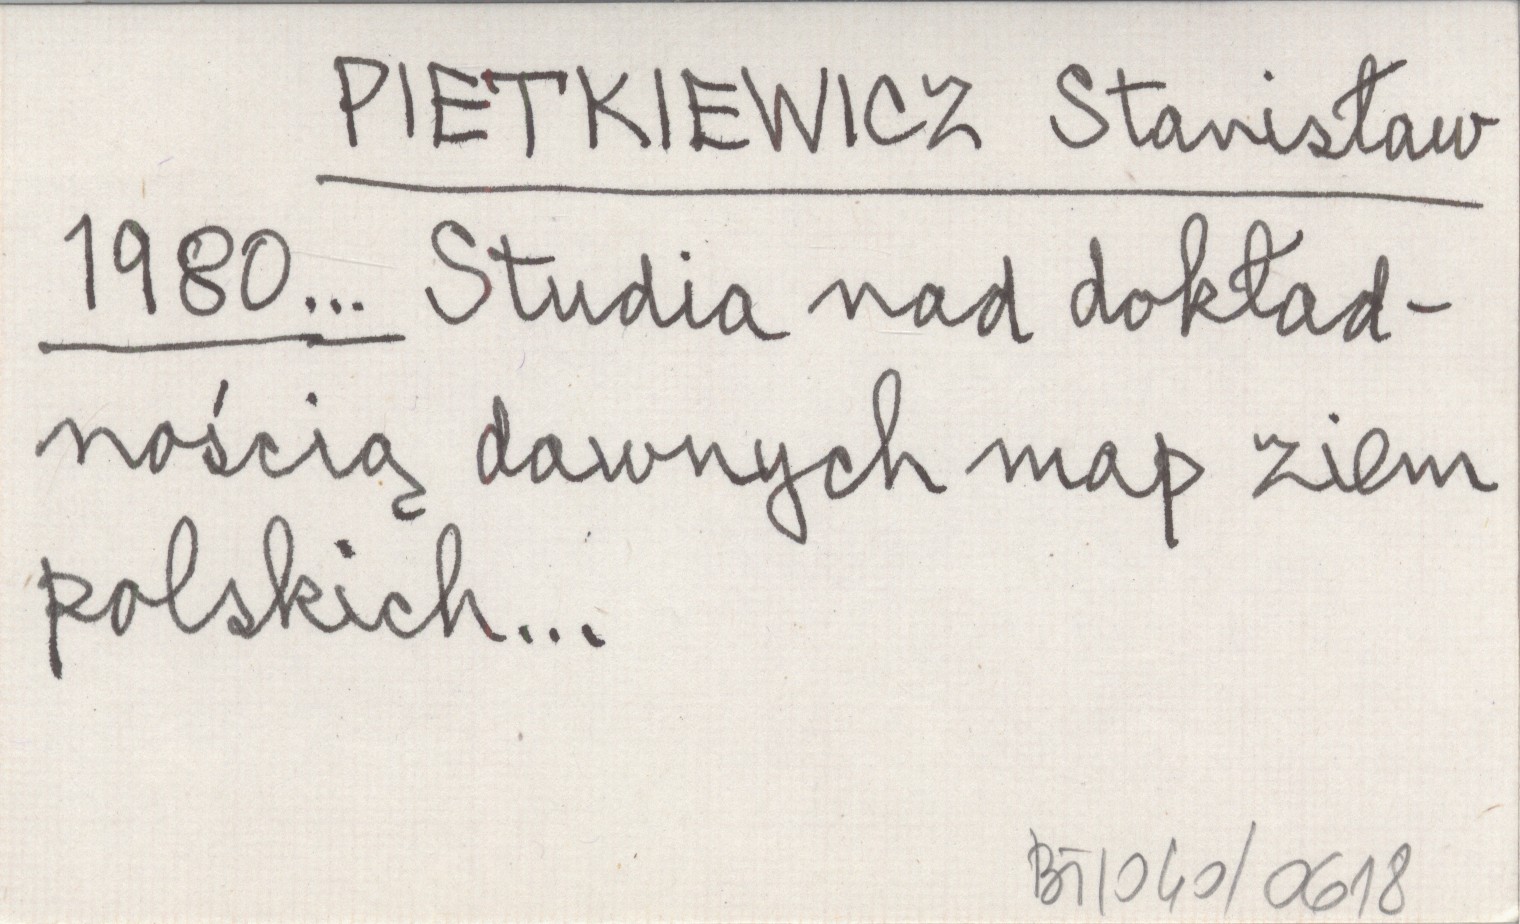 PIETKIEWICZ Stanisław
1980... Studia nad dokład-
nością dawnych map ziem
polskich...
BT/040/0618